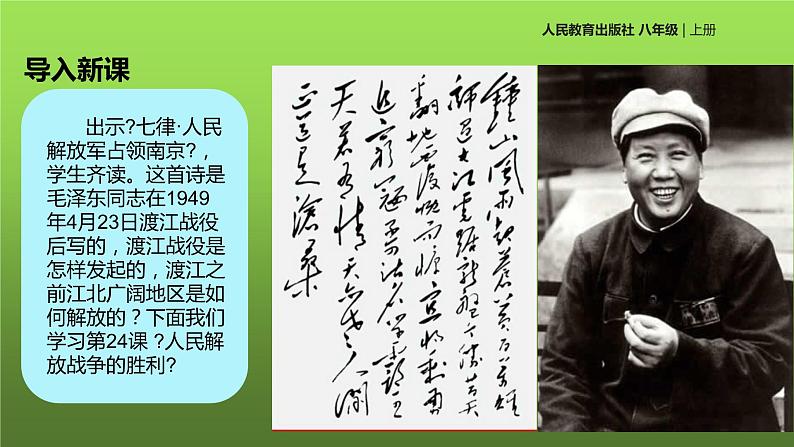 人民教育出版社 八年级 | 上册
导入新课
出示?七律·人民
解放军占领南京?，
学生齐读。这首诗是
毛泽东同志在1949
年4月23日渡江战役
后写的，渡江战役是
怎样发起的，渡江之
前江北广阔地区是如
何解放的？下面我们
学习第24课 ?人民解
放战争的胜利?
鍾山風雨起蒼黄百萬雄
師過大江虎踞龍盤今勝昔天
翻地覆慨而慷宜將剩勇
追窮寇不可沽名學霸王
天若有情天亦老人間
正道是滄桑